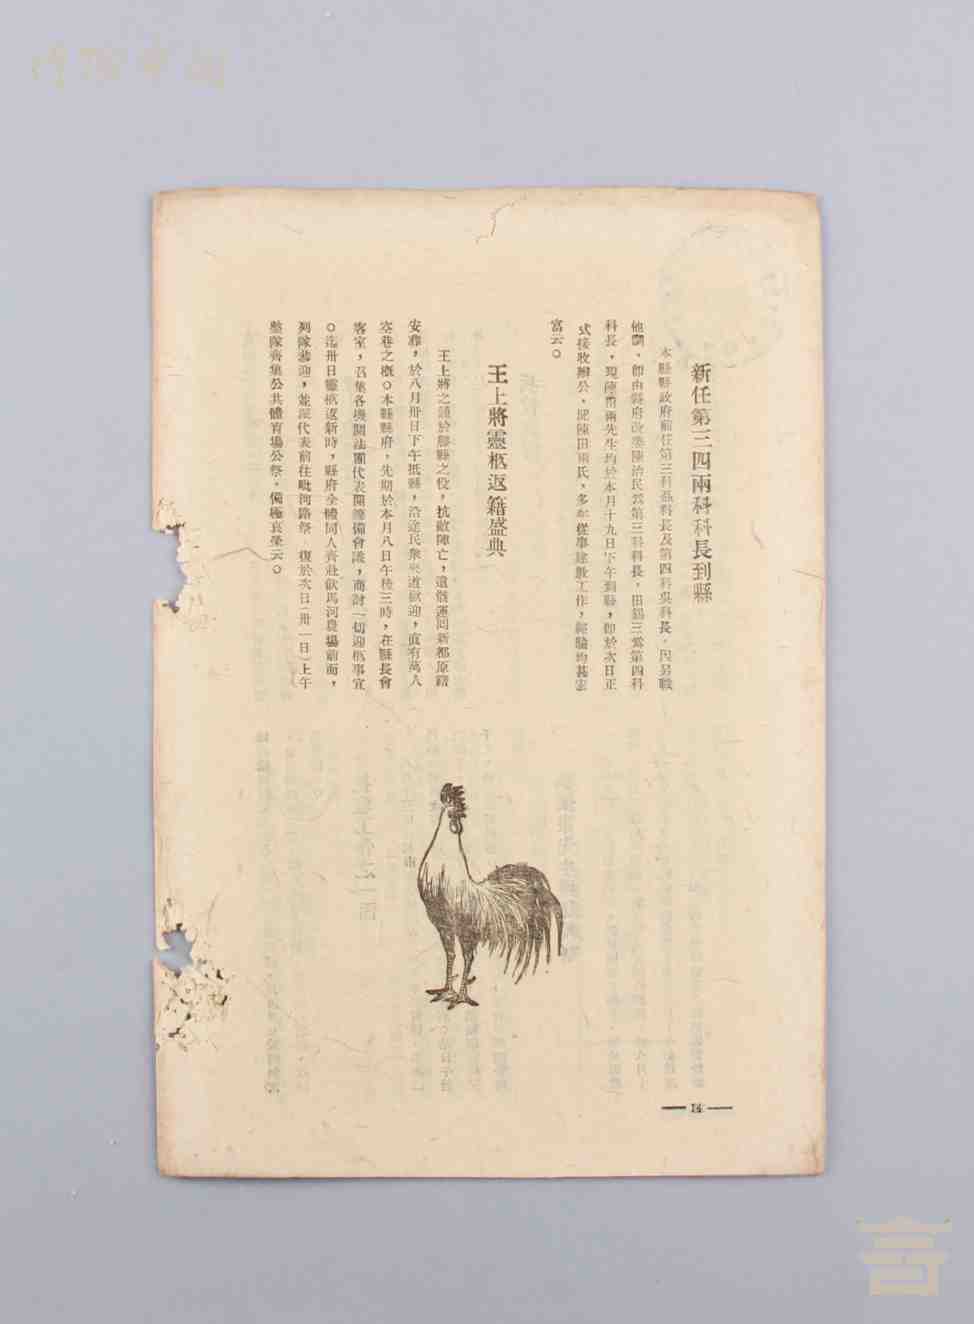 新任第三四兩科科長到縣
本縣縣政府前任第三科聶科長及第四科吳科長，因另職
他調，卽由縣府改委陳治民為第三科科長，田錫三為第四科
科長，現陳田兩先生均於本月十九日下午到縣，卽於次日正
式接收辦公，據陳田兩氏，多年從事建敎工作，經驗均甚宏
富云。
王上將靈柩返籍盛典
王上將之銘於滕縣之役，抗敵陣亡，遺骸運囘新都原籍
安葬，於八月卅日下午抵縣，沿途民衆夾道歡迎，直有萬人
空巷之槪。本縣縣府，先期於本月八日午後三時，在縣長會
客室，召集各機關法團代表開籌備會議，商討一切迎柩事宜
。迄卅日靈柩返新時，縣府全體同人齊赴飲馬河農場前面，
列隊恭迎，並派代表前往毗河路祭，復於次日（卅一日）上午
整隊齊集公共體育場公祭，備極哀榮云。